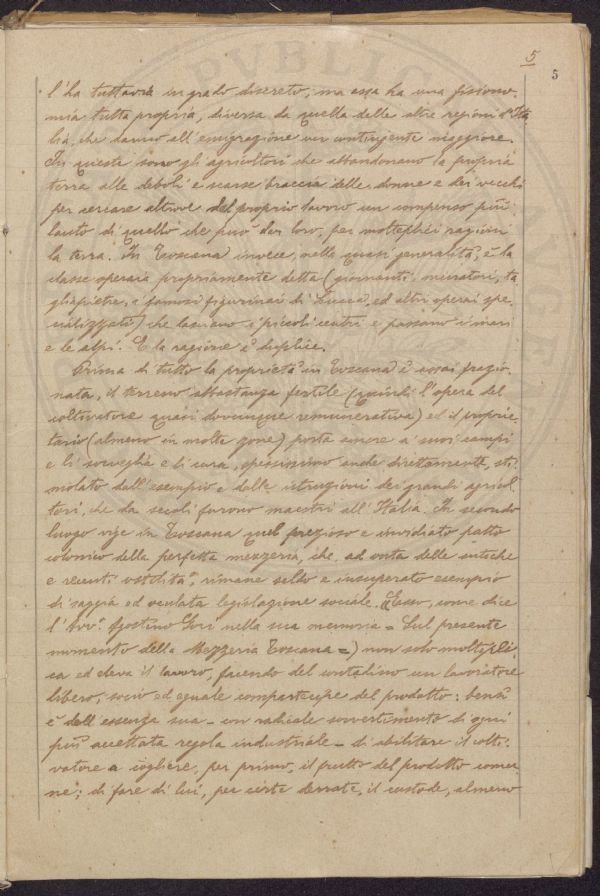 5
5
l'ha tuttavia in grado discreto, ma essa ha una fisiono-
mia tutta propria, diversa da quella delle altre regioni d'Ita-
lia, che danno all'emigrazione un contingente maggiore.
In queste sono gli agricoltori che abbandonano la propria
terra alle deboli e scarse braccia delle donne e dei vecchi
per cercare altrove del proprio lavoro un compenso più
lauto di quello che può dar loro, per molteplici ragioni
la terra. In Toscana invece, nella quasi generalità, è la
classe operaia propriamente detta (giornanti, muratori, ta-
gliapietre, i famosi figurinai di Lucca, ed altri operai spe-
cializzati) che lasciano i piccoli centri e passano i mari
e le alpi. E la ragione è duplice.
Prima di tutto la proprietà in Toscana è assai frazio-
nata, il terreno abbastanza fertile (quindi l'opera del
coltivatore quasi dovunque remunerativa) ed il proprie-
tario (almeno in molte zone) porta amore a' suoi campi
e li sorveglia e li cura, spessissimo anche direttamente, sti-
molato dall'esempio e dalle istruzioni dei grandi agricol-
tori, che da secoli furono maestri all'Italia. In secondo
luogo vige in Toscana quel prezioso e invidiato patto
colonico della perfetta mezzeria, che ad onta delle antiche
e recenti ostilità, rimane saldo e insuperato esempio
di saggia ed oculata legislazione sociale. Esso, come dice
l'Avv. Agostino Gori nella sua memoria = Sul presente
momento della Mezzeria Toscana =) non solo moltipli-
ca ed eleva il lavoro, facendo del contadino un lavoratore
libero, socio ed eguale compartecipe del prodotto: bensì
è dell'essenza sua - con radicale sovvertimento di ogni
più accettata regola industriale - di abilitare il colti-
vatore a cogliere, per primo, il frutto del prodotto comu-
ne; di fare di lui, per certe derrate, il custode, almeno